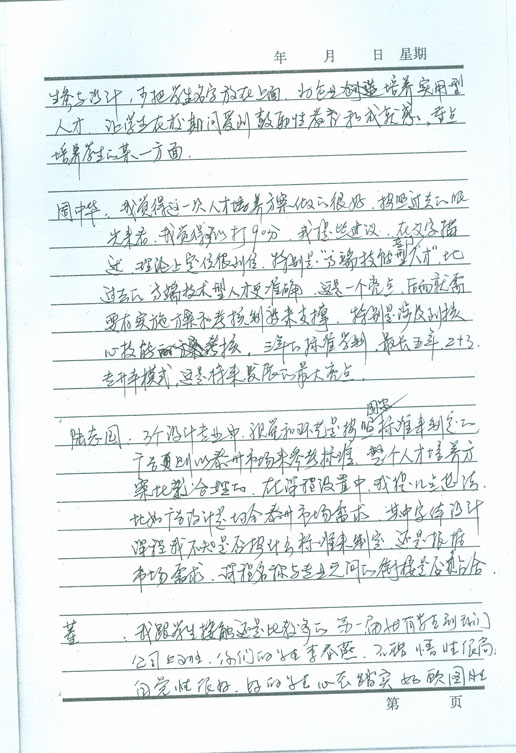 年 月 日 星期
设计，可把学生名字放在上面。为企业创造培养实用型
人才，让学生在校期间受到鼓励性教育和成就感，重点
培养学生的某一方面。
周中华：我觉得这一次人才培养方案做的很好，按照过去的眼
光来看，我觉得可以打90分，我提些建议，在文字描
述，理论上定位很到位，特别是"高端技能型人才"比
过去的高端技术型人才更准确，这是一个亮点，后面就需
要有实施方案和考核制度来支撑，特别是涉及到核
心技能的考核，三年的标准学制，最长五年，2+3
专升本模式，这是将来发展的最大亮点。
陆志国：3个设计专业中，是按照国家标准来制定的
广告则以泰州市场来参考标准，整个人才培养方
案比较合理的，在课程设置中，我提几点想法
比如广告设计是切合泰州市场需求，其中字体设计
课程我不知是否按什么标准来制定，还是根据
市场需求，课程名称与专业之间的衔接是否贴合。
董：我跟学生接触还是比较多的，第一届也有学生到我们
公司上班，你们的学生李春燕，不错，悟性很高，
自觉性很好，好的学生心态踏实，
第 页